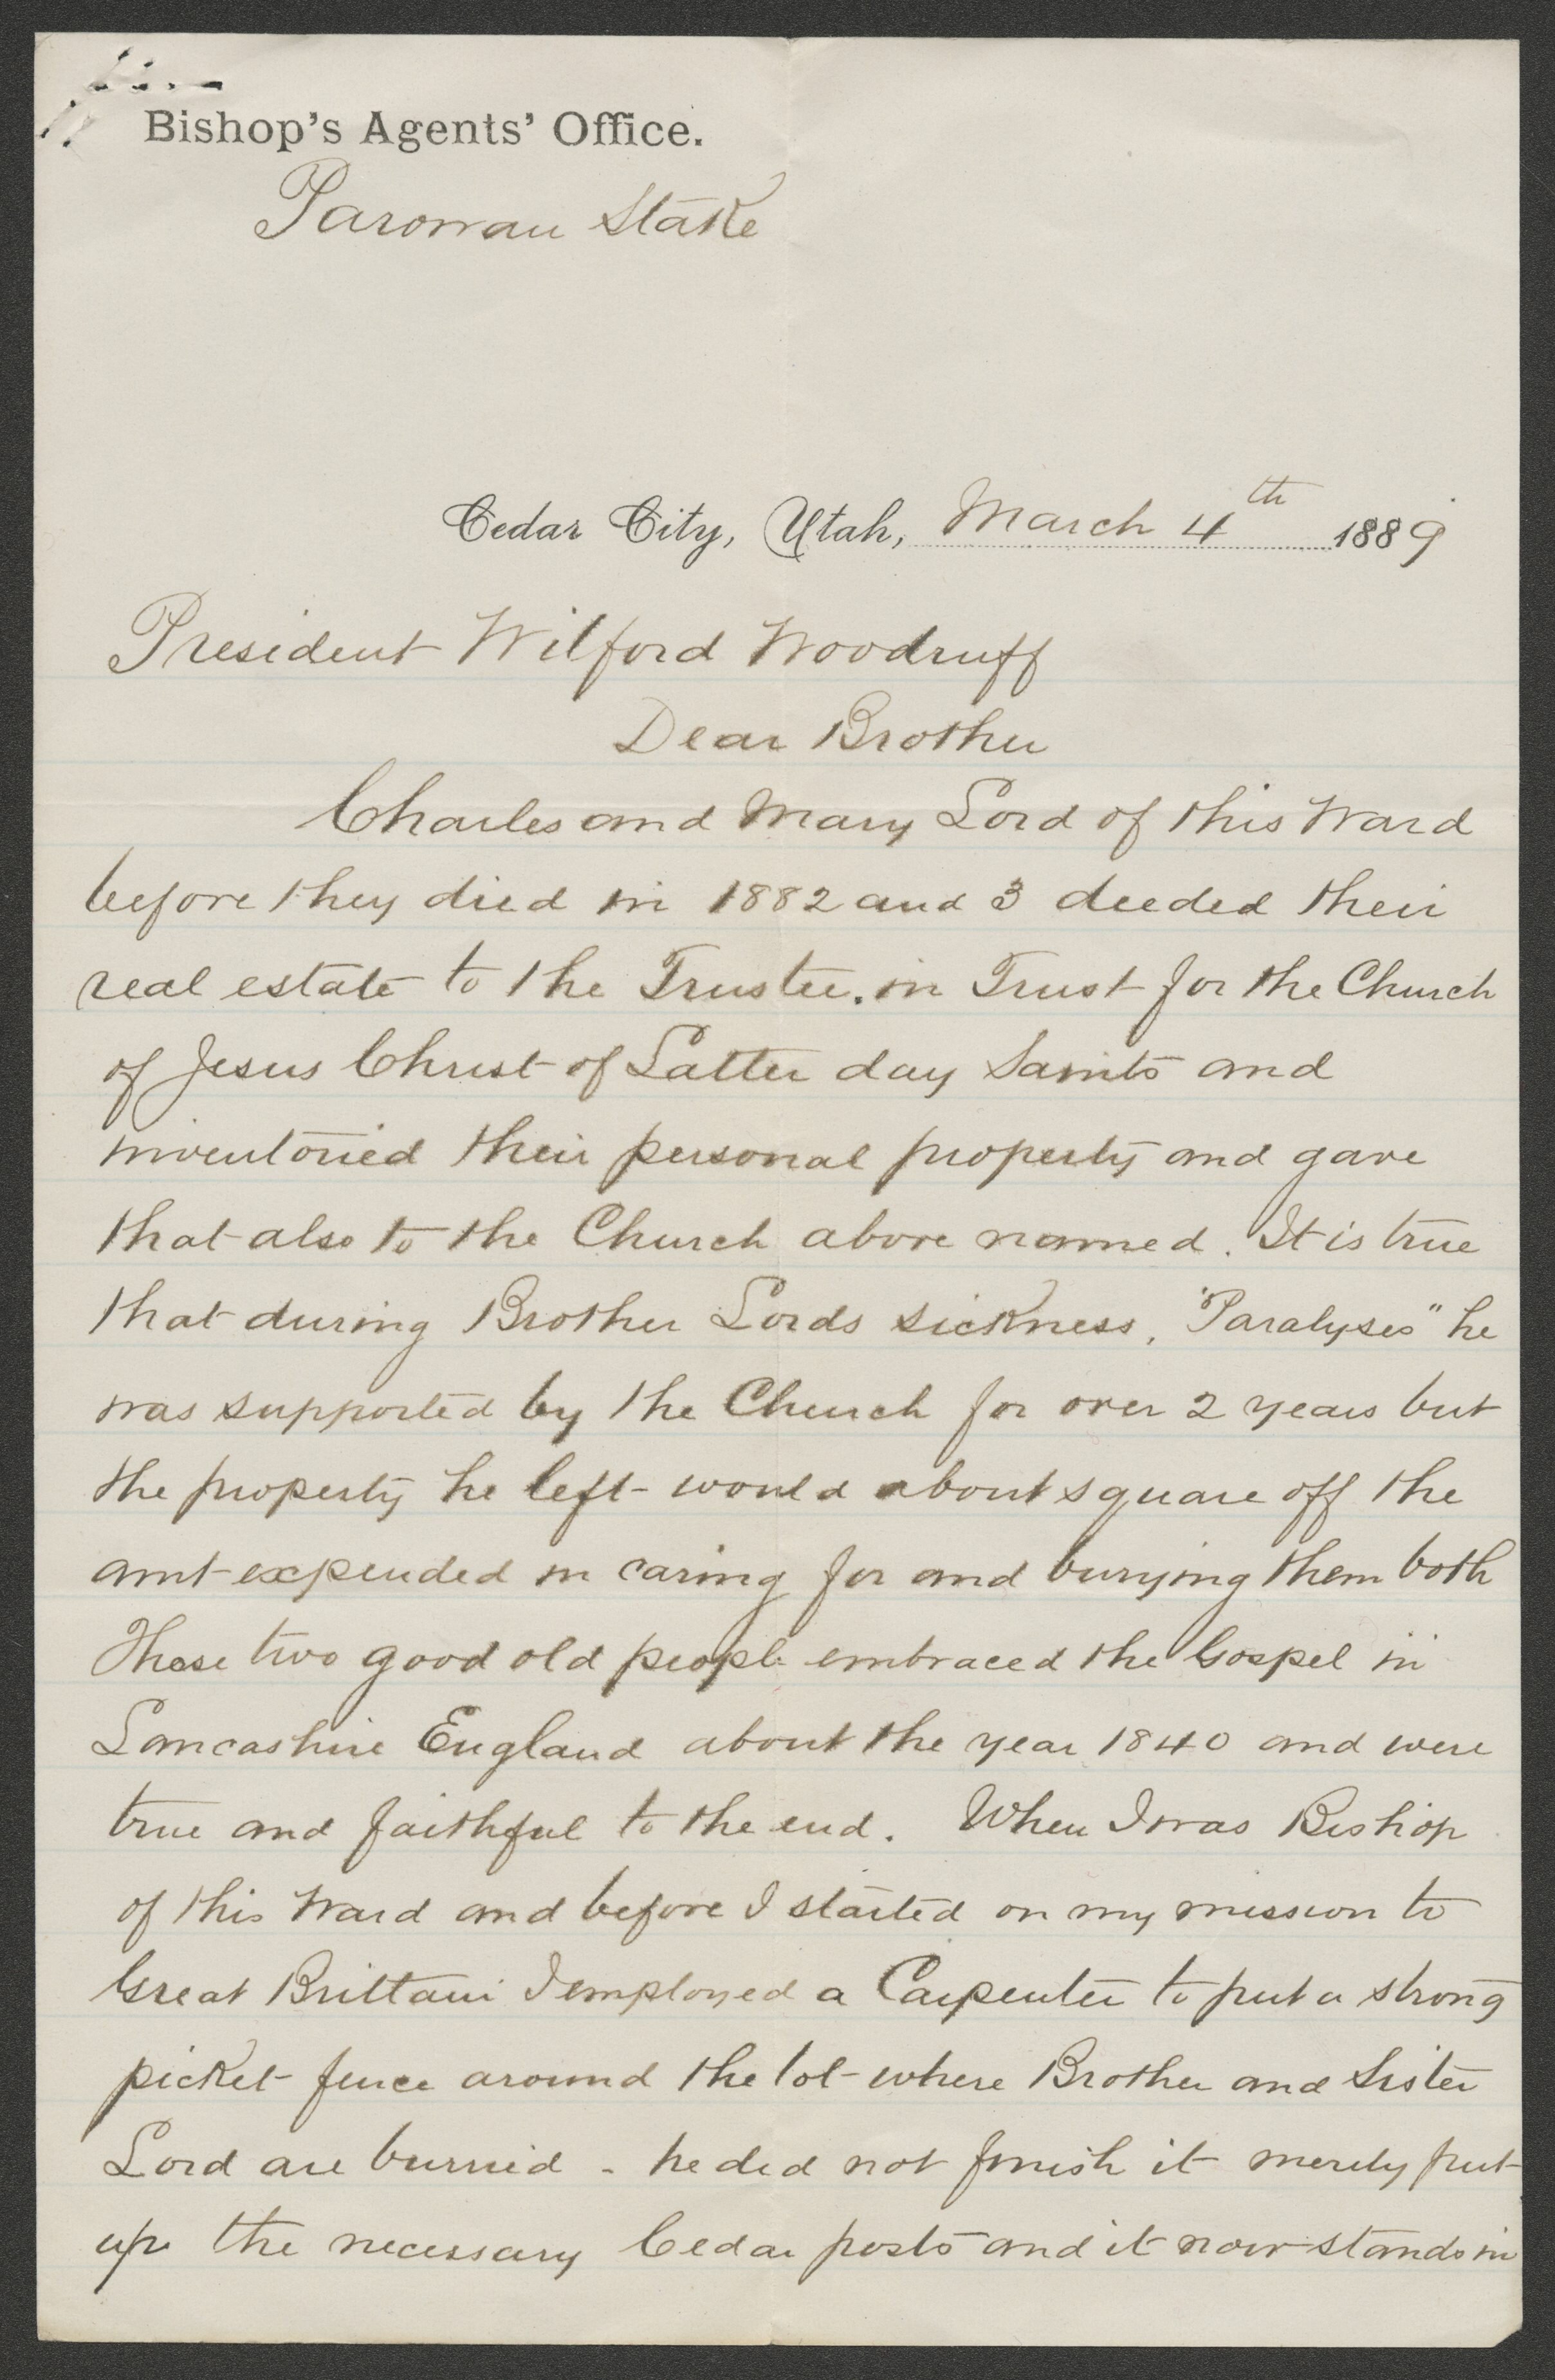 Bishop's Agents' Office.
Parowan Stake
Cedar City, Utah, March 4th 1889
President Wilford Woodruff
Dear Brother
Charles and Mary Lord of this Ward
before they died in 1882 and 3 deeded their
real estate to the Trustee. in Trust for the Church
of Jesus Christ of Latter day Saints and
inventoried their personal property and gave
that also to the Church above named. It is true
that during Brother Lords sickness, "Paralyses" he
was supported by the Church for over 2 years but
the property he left would about square off the
amt expended in caring for and burying them both
These two good old people embraced the Gospel in
Lancashire England about the year 1840 and were
true and faithful to the end. When I was Bishop
of this Ward and before I started on my mission to
Great Brittain I employed a Carpenter to put a strong
picket fence around the lot where Brother and Sister
Lord are burried - he did not finish it merely put
up the necessary Cedar posts and it now stands in